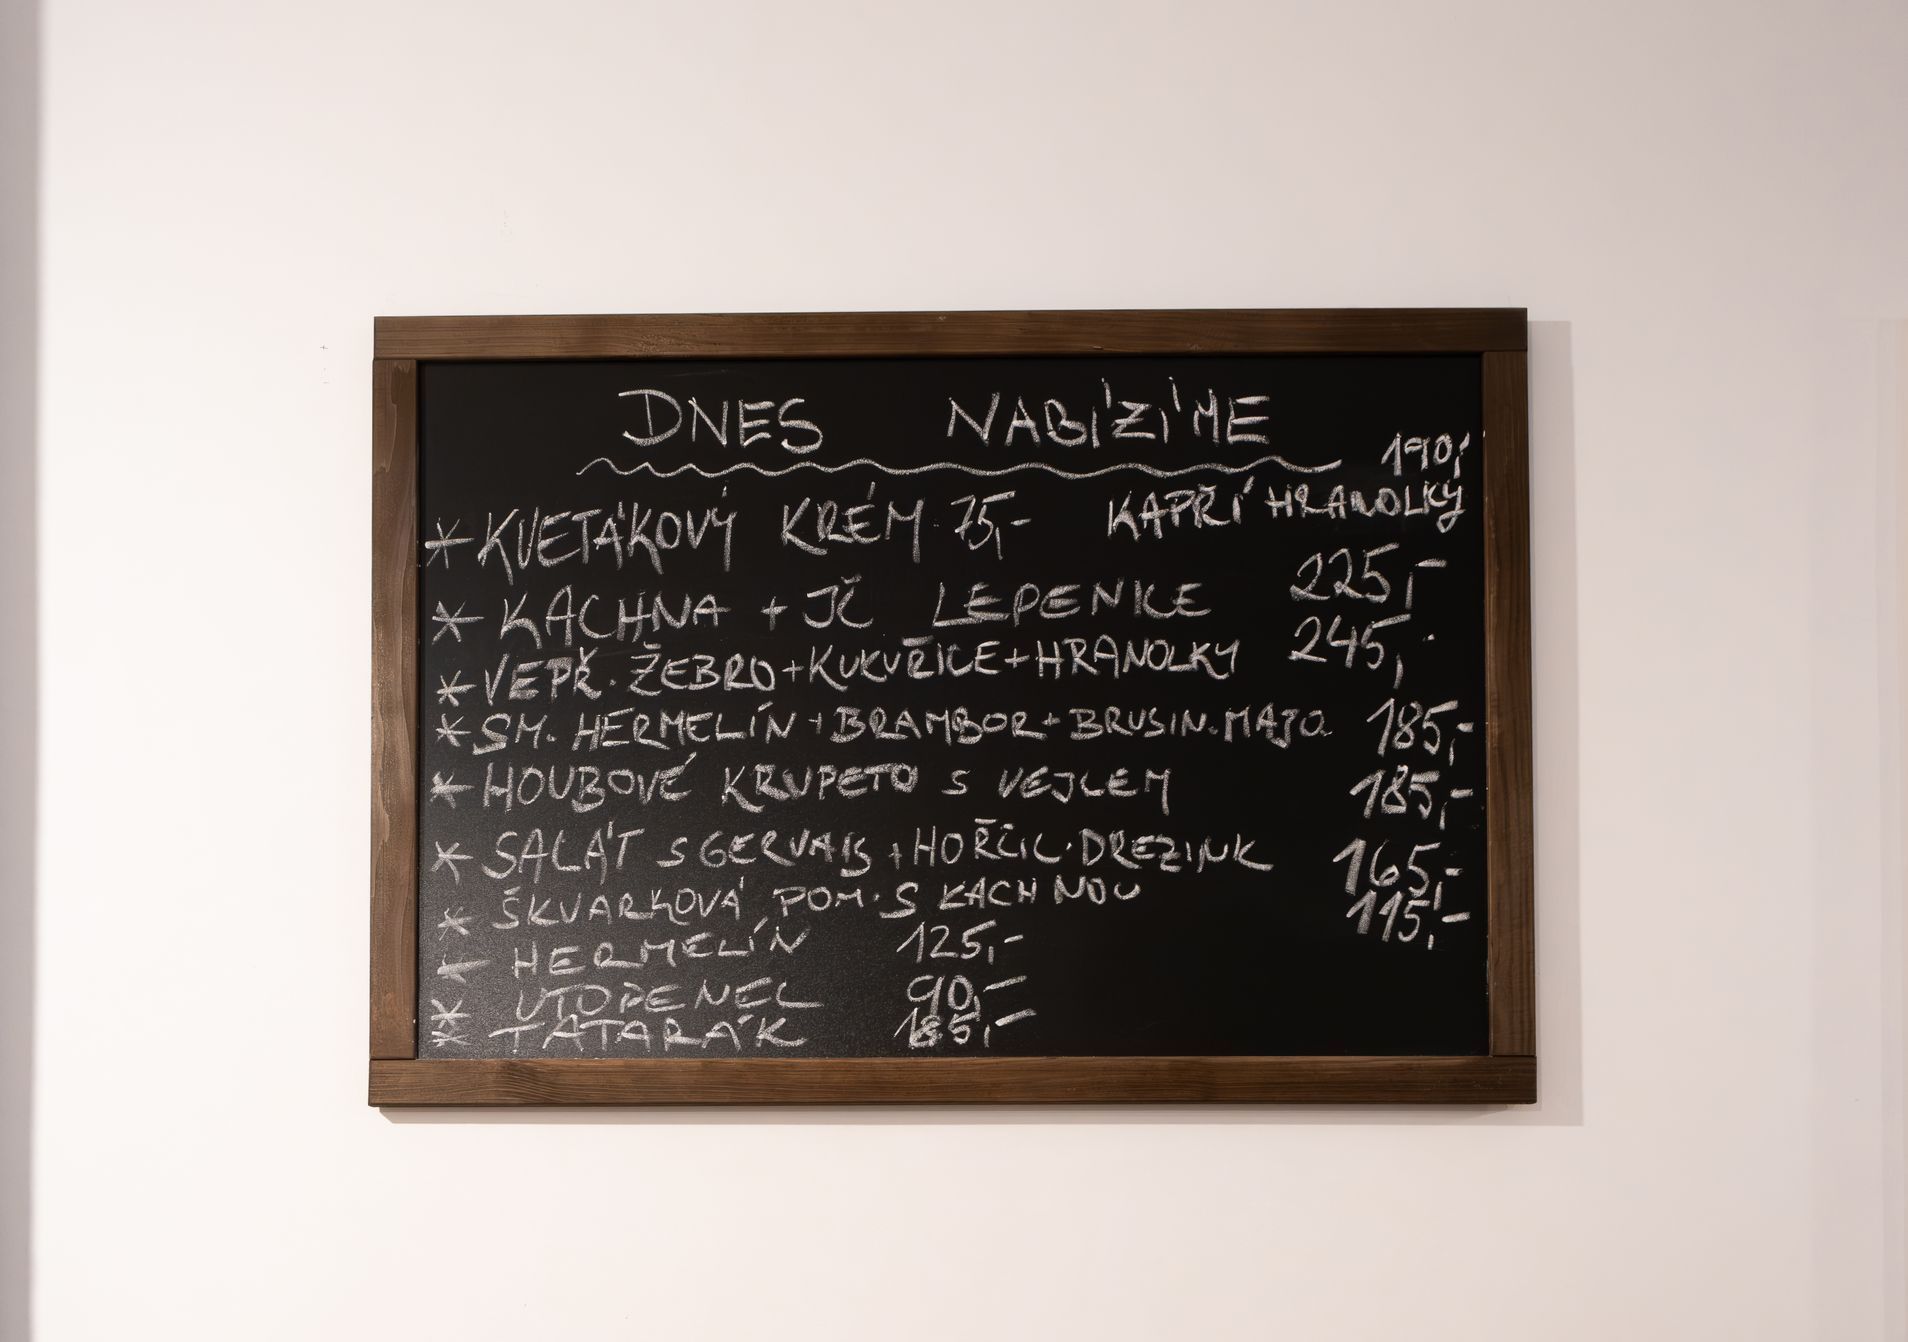 DNES NABÍZÍME
190,-
* KVETÁKOVÝ KRÉM 75,- KAPŘÍ HRANOLKY
* KACHNA + JČ LEPENICE 225,-
* VEPŘ. ŽEBRO + KUKUŘICE + HRANOLKY 245,-
* SM. HERMELÍN + BRAMBOR + BRUSIN. MAJO 185,-
* HOUBOVÉ KRUPETO S VEJCEM 185,-
* SALÁT S GERVAIS + HOŘČIC. DREZINK 165,-
* ŠKVARKOVÁ POM. S KACHNOU 115,-
* HERMELÍN 125,-
* UTOPENEC 90,-
* TATARÁK